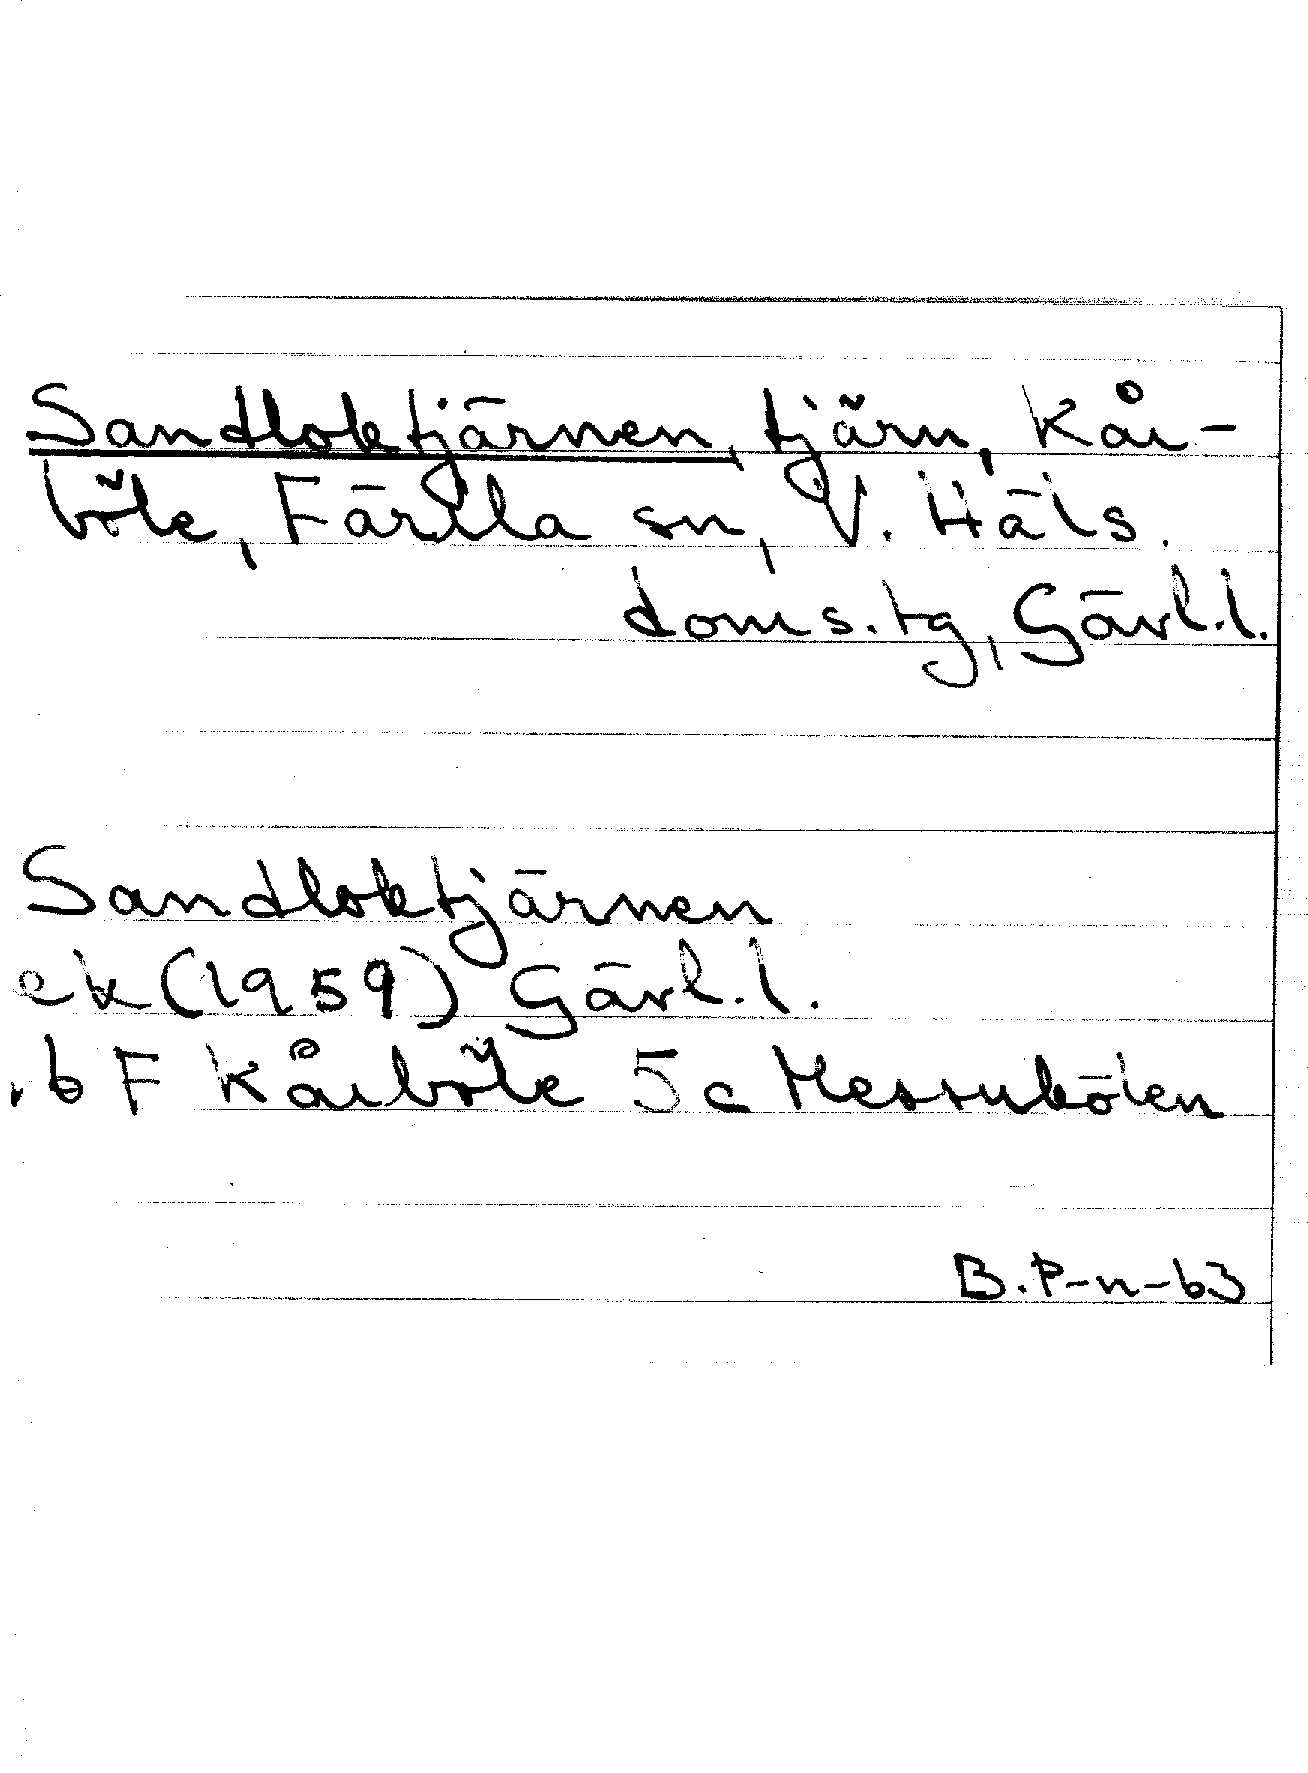 Sandloktjärnen, tjärn, Kår-
böle, Färila sn, V. Häls.
doms.tg, Gävl.l.
Sandloktjärnen
ek (1959) Gävl.l.
b F Kårböle 5c Messubölen
B.P-n-63